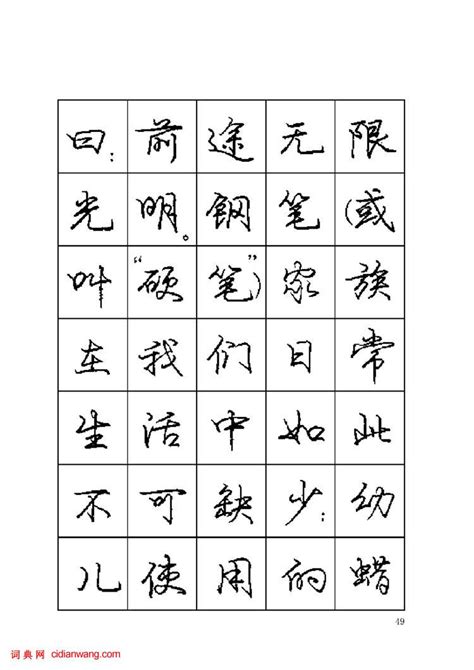 曰：前途无限
光明。钢笔（或
叫“硬笔”）家族
在我们日常
生活中如此
不可缺少：幼
儿使用的蜡
49
词典网 cidianwang.com